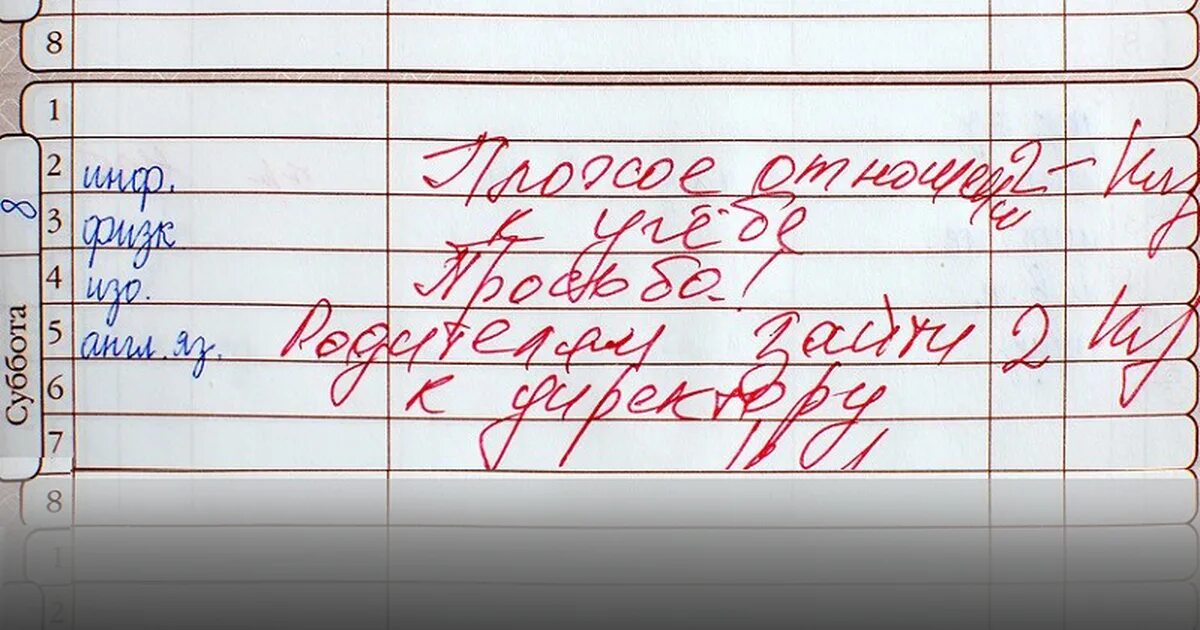 8
1
2 инф. Плохое отношен 2- Ку
ии
3 физк к учёбе
4 изо. Просьба!
5 англ. яз. Родителям зайти 2 Ку
6 к директору
7
8
1
2
8
Суббота